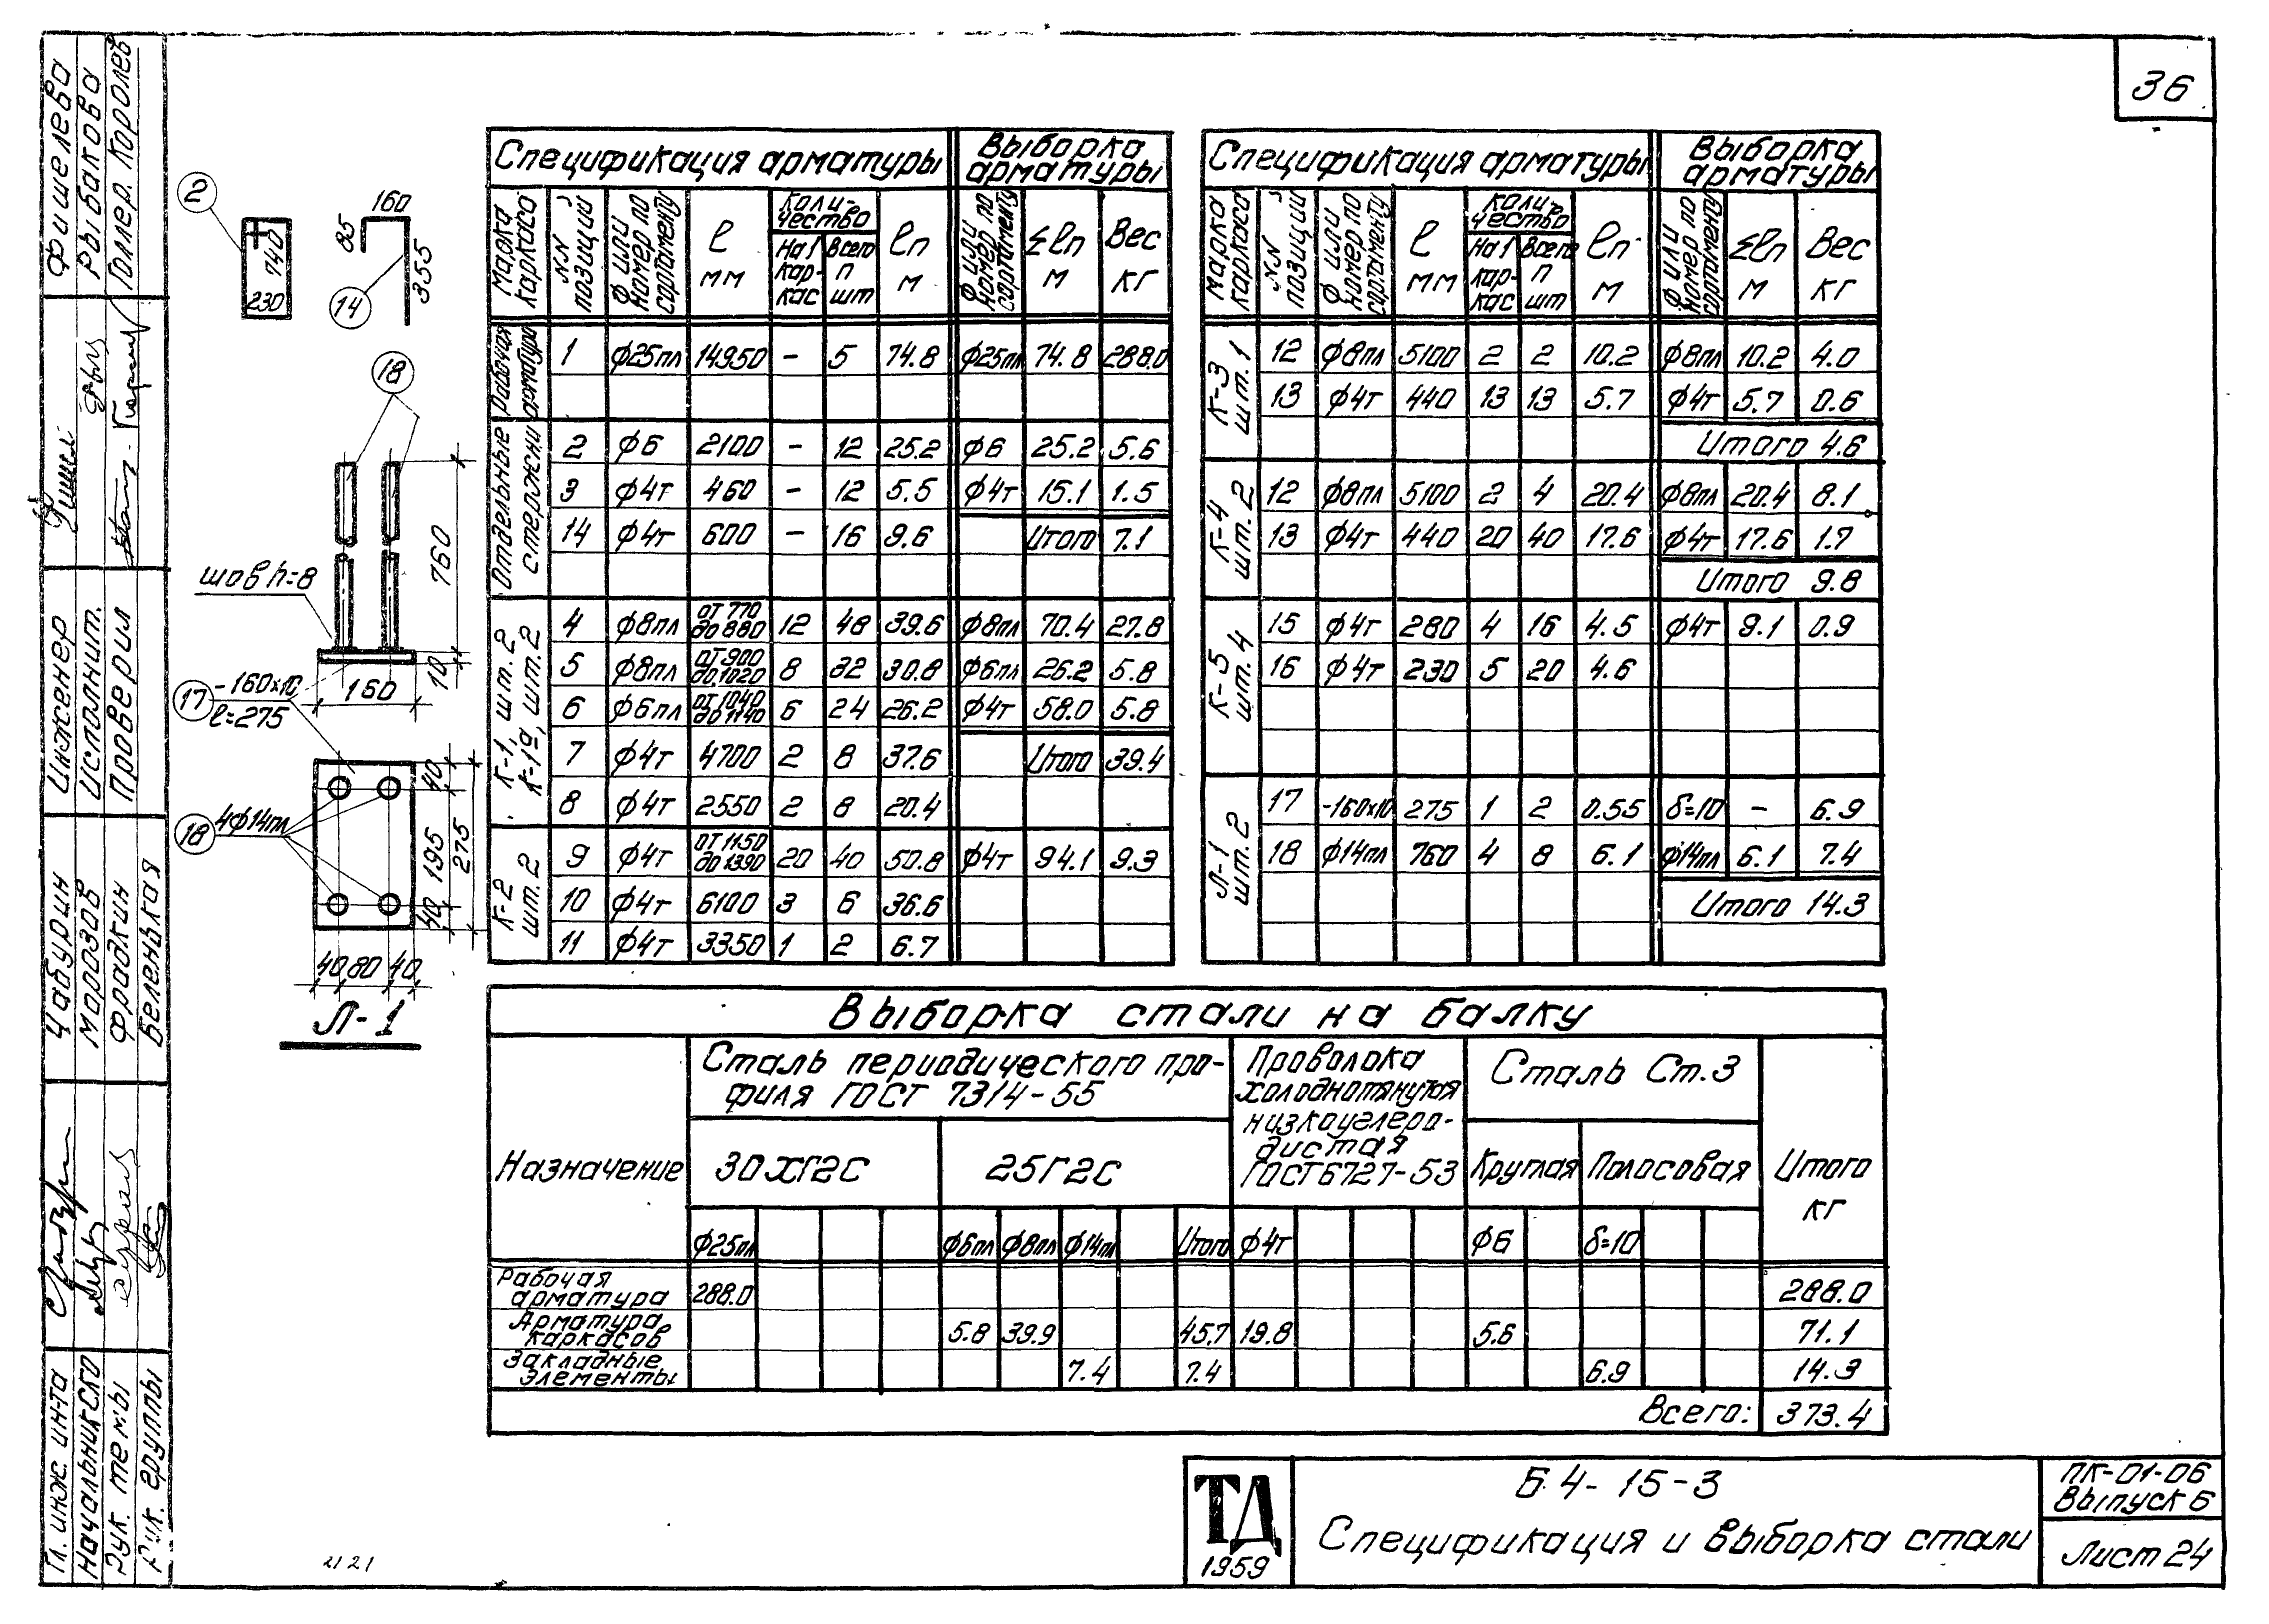 36
Фишелева
Рыбакова
Голлер. Королев
Инженер
Исполнит.
Проверил
Цабурин
Морозов
Фрадкин
Беленькая
Гл. инж. ин-та
Начальник СКО
Рук. темы
Рук. группы
2
740
230
160
85
355
14
18
760
шов h=8
10
17
-160x10
l=275
160
18
4ф14пл
40
195
40
275
40 80 40
Л-1
Спецификация арматуры
Выборка арматуры
Марка каркаса
NN позиций
Ф или номер по сортаменту
l мм
Количество
На 1 каркас
Всего n шт
ln м
Ф или номер по сортаменту
Σln м
Вес кг
Рабочая арматура
1 ф25пл 14950 – 5 74.8 ф25пл 74.8 288.0
Отдельные стержни
2 ф6 2100 – 12 25.2 ф6 25.2 5.6
3 ф4т 460 – 12 5.5 ф4т 15.1 1.5
14 ф4т 600 – 16 9.6 Итого 7.1
К-1, шт. 2
К-1а, шт. 2
4 ф8пл от 770 до 880 12 48 39.6 ф8пл 70.4 27.8
5 ф8пл от 900 до 1020 8 32 30.8 ф6пл 26.2 5.8
6 ф6пл от 1040 до 1140 6 24 26.2 ф4т 58.0 5.8
7 ф4т 4700 2 8 37.6 Итого 39.4
8 ф4т 2550 2 8 20.4
К-2 шт. 2
9 ф4т от 1150 до 1390 20 40 50.8 ф4т 94.1 9.3
10 ф4т 6100 3 6 36.6
11 ф4т 3350 1 2 6.7
Спецификация арматуры
Выборка арматуры
Марка каркаса
NN позиций
Ф или номер по сортаменту
l мм
Количество
На 1 каркас
Всего n шт
ln м
Ф или номер по сортаменту
Σln м
Вес кг
К-3 шт. 1
12 ф8пл 5100 2 2 10.2 ф8пл 10.2 4.0
13 ф4т 440 13 13 5.7 ф4т 5.7 0.6
Итого 4.6
К-4 шт. 2
12 ф8пл 5100 2 4 20.4 ф8пл 20.4 8.1
13 ф4т 440 20 40 17.6 ф4т 17.6 1.7
Итого 9.8
К-5 шт. 4
15 ф4т 280 4 16 4.5 ф4т 9.1 0.9
16 ф4т 230 5 20 4.6
Л-1 шт. 2
17 -160x10 275 1 2 0.55 δ=10 – 6.9
18 ф14пл 760 4 8 6.1 ф14пл 6.1 7.4
Итого 14.3
Выборка стали на балку
Назначение
Сталь периодического про-
филя ГОСТ 7314-55
Проволока
холоднотянутая
низкоуглеро-
дистая
ГОСТ 6727-53
Сталь Ст.3
30ХГ2С
25Г2С
Круглая
Полосовая
Итого
кг
ф25пл ф6пл ф8пл ф14пл Итого ф4т ф6 δ=10
Рабочая
арматура 288.0 288.0
Арматура
каркасов 5.8 39.9 45.7 19.8 5.6 71.1
Закладные
элементы 7.4 7.4 6.9 14.3
Всего: 373.4
ТД
1959
Б4-15-3
Спецификация и выборка стали
ПК-01-06
Выпуск 6
Лист 24
2121